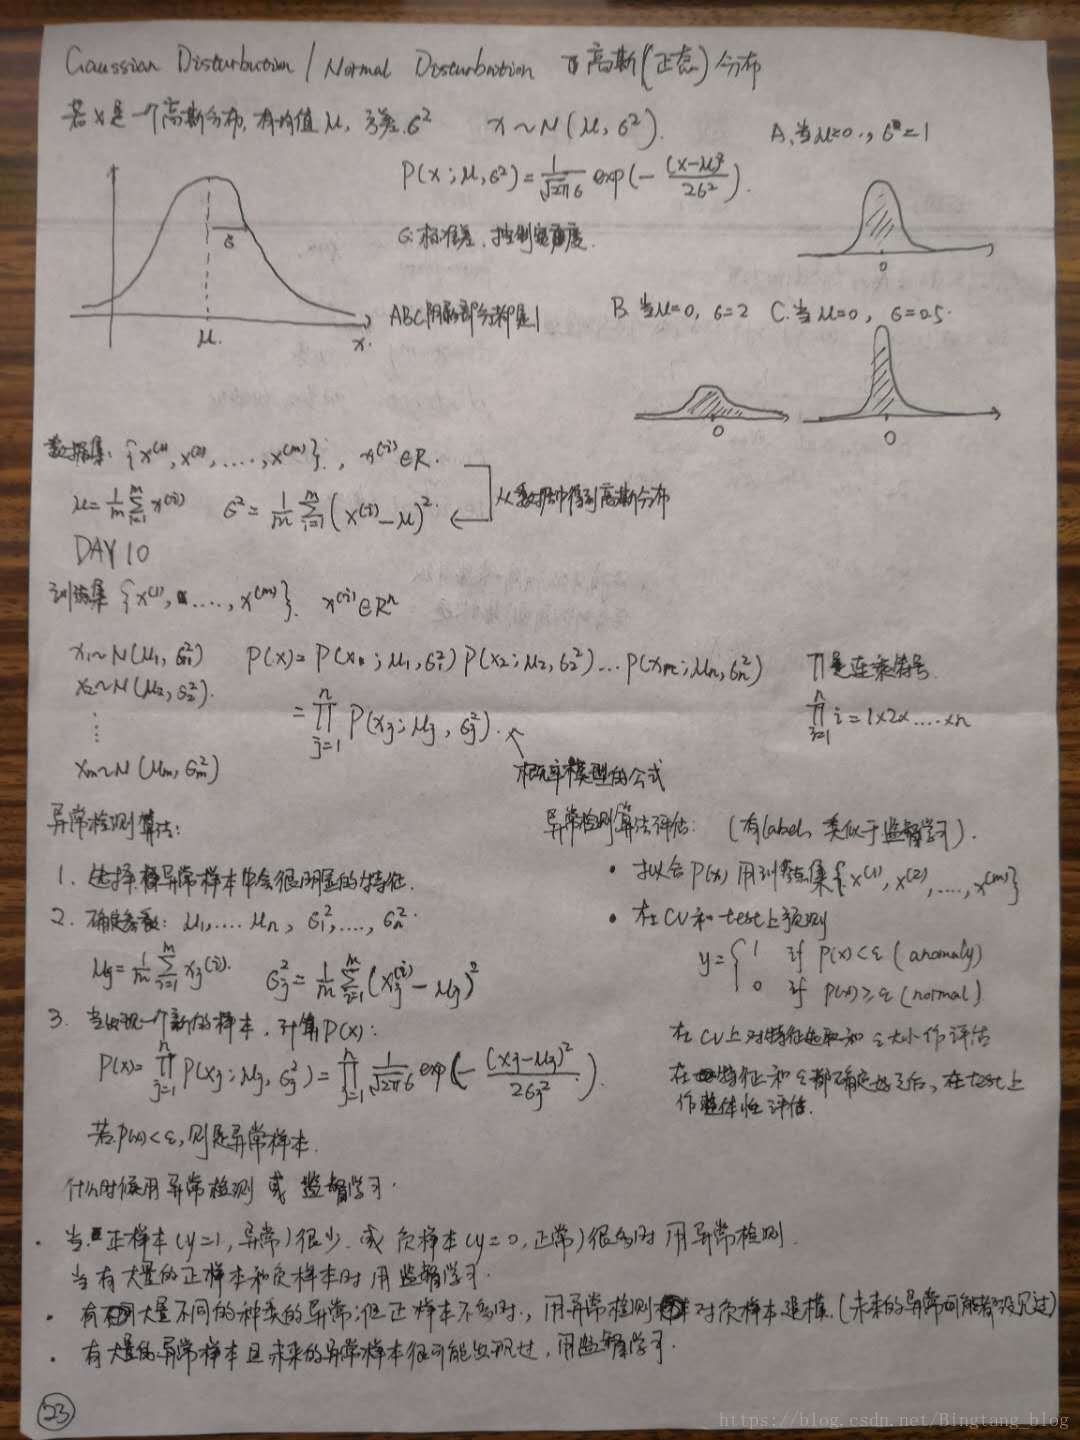 Gaussian Disturbution / Normal Disturbution 高斯(正态)分布
若x是一个高斯分布,有均值μ,方差σ² x~N(μ,σ²).
A.当μ=0,σ²=1
P(x;μ,σ²)=1/(√2π σ) exp(-(x-μ)²/2σ²).
σ:标准差,控制宽度.
σ
μ.
x.
0
ABC阴影部分都是1
B.当μ=0,σ=2 C.当μ=0,σ=0.5.
0
0
数据集:{x⁽¹⁾,x⁽²⁾,....,x⁽ᵐ⁾}.,x⁽ⁱ⁾∈R.
μ=1/m ∑ᵢ₌₁ᵐ x⁽ⁱ⁾ σ²=1/m ∑ᵢ₌₁ᵐ (x⁽ⁱ⁾-μ)². 从数据中得到高斯分布
DAY 10
训练集{x⁽¹⁾,.....,x⁽ᵐ⁾}. x⁽ⁱ⁾∈Rⁿ
x₁~N(μ₁,σ₁²) P(x)=P(x₁;μ₁,σ₁²)P(x₂;μ₂,σ₂²)...P(xₙ;μₙ,σₙ²) ∏是连乘符号.
x₂~N(μ₂,σ₂²).
=∏ⱼ₌₁ⁿ P(xⱼ;μⱼ,σⱼ²). ∏ᵢ₌₁ⁿ i=1×2×....×n
xₘ~N(μₘ,σₘ²)
概率模型的公式
异常检测算法:
1.选择异常样本中会很明显的特征.
2.确定参数:μ₁,....μₙ,σ₁²,....,σₙ².
μⱼ=1/m ∑ᵢ₌₁ᵐ xⱼ⁽ⁱ⁾. σⱼ²=1/m ∑ᵢ₌₁ᵐ (xⱼ⁽ⁱ⁾-μⱼ)²
3.当出现一个新的样本,计算P(x):
P(x)=∏ⱼ₌₁ⁿ P(xⱼ;μⱼ,σⱼ²)=∏ⱼ₌₁ⁿ 1/(√2π σ) exp(-(xⱼ-μⱼ)²/2σⱼ²).
若P(x)<ε,则是异常样本.
异常检测算法评估: (有label,类似于监督学习).
• 拟合P(x)用训练集{x⁽¹⁾,x⁽²⁾,....,x⁽ᵐ⁾}
• 在CV和test上预测
y={1 if P(x)<ε (anomaly)
0 if P(x)≥ε (normal)
在CV上对特征选取和ε大小作评估
在特征和ε都确定好之后,在test上
作整体性评估.
什么时候用异常检测 或 监督学习.
• 当正样本(y=1,异常)很少.或 负样本(y=0,正常)很多时 用异常检测.
当有大量的正样本和负样本时 用监督学习.
• 有大量不同的种类的异常;但正样本不多时,用异常检测对负样本建模.(未来的异常可能都没见过)
• 有大量的异常样本且未来的异常样本很可能出现过,用监督学习.
23
https://blog.csdn.net/Bingtang_blog